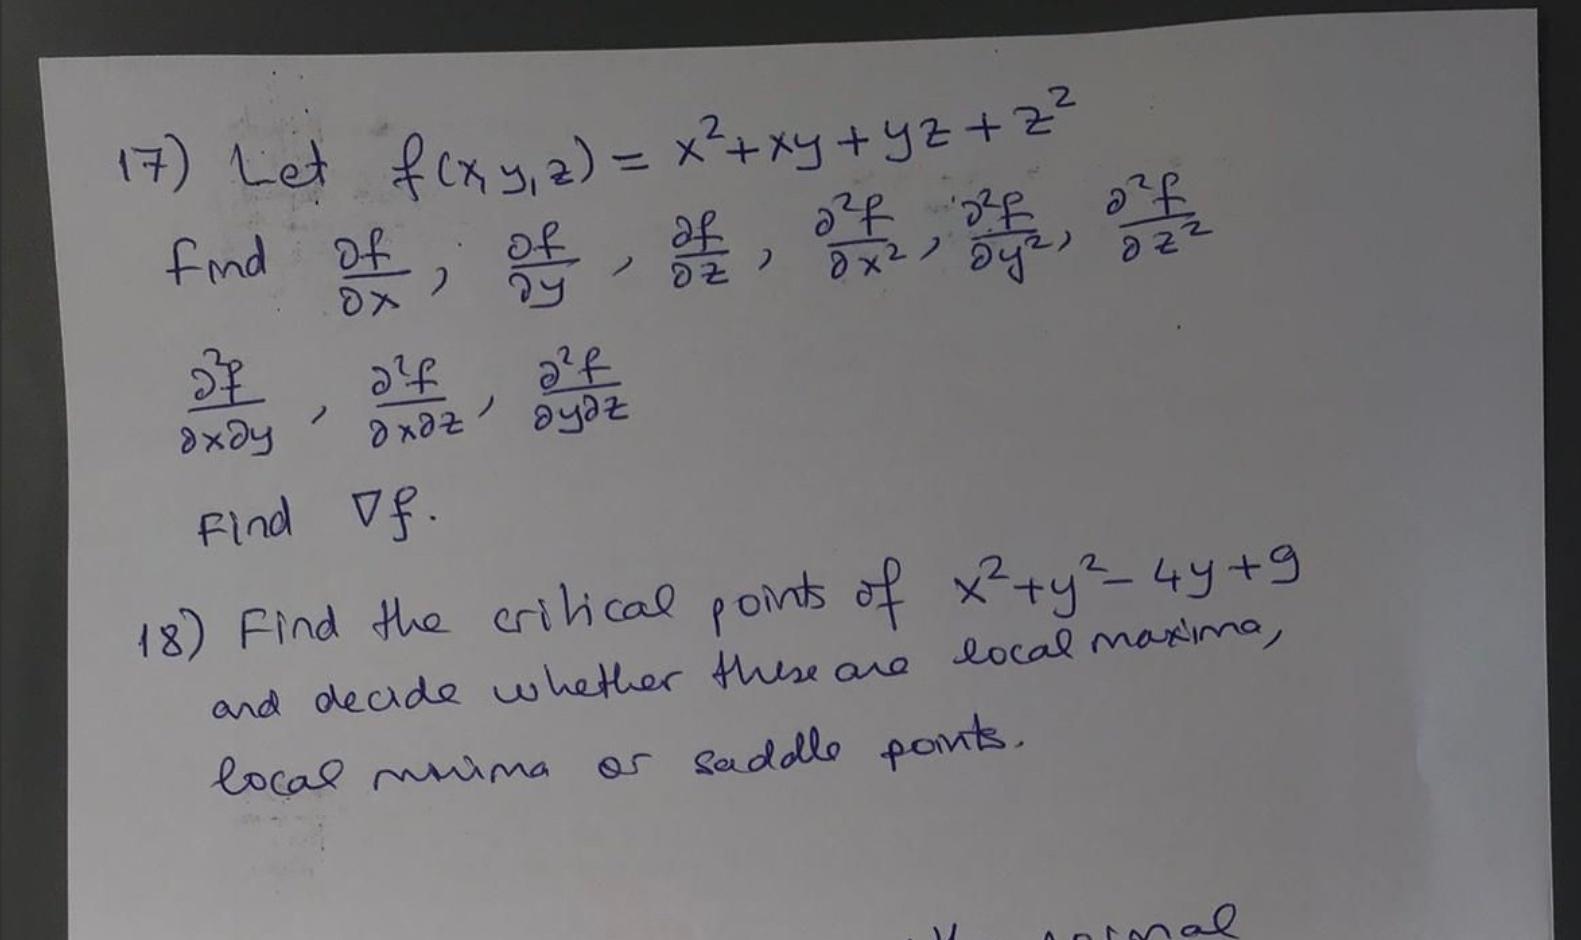 17) Let f(x,y,z) = x²+xy+yz+z²
find ∂f/∂x, ∂f/∂y, ∂f/∂z, ∂²f/∂x², ∂²f/∂y², ∂²f/∂z²
∂²f/∂x∂y, ∂²f/∂x∂z, ∂²f/∂y∂z
Find ∇f.
18) Find the critical points of x²+y²-4y+9
and decide whether these are local maxima,
local minima or saddle points.